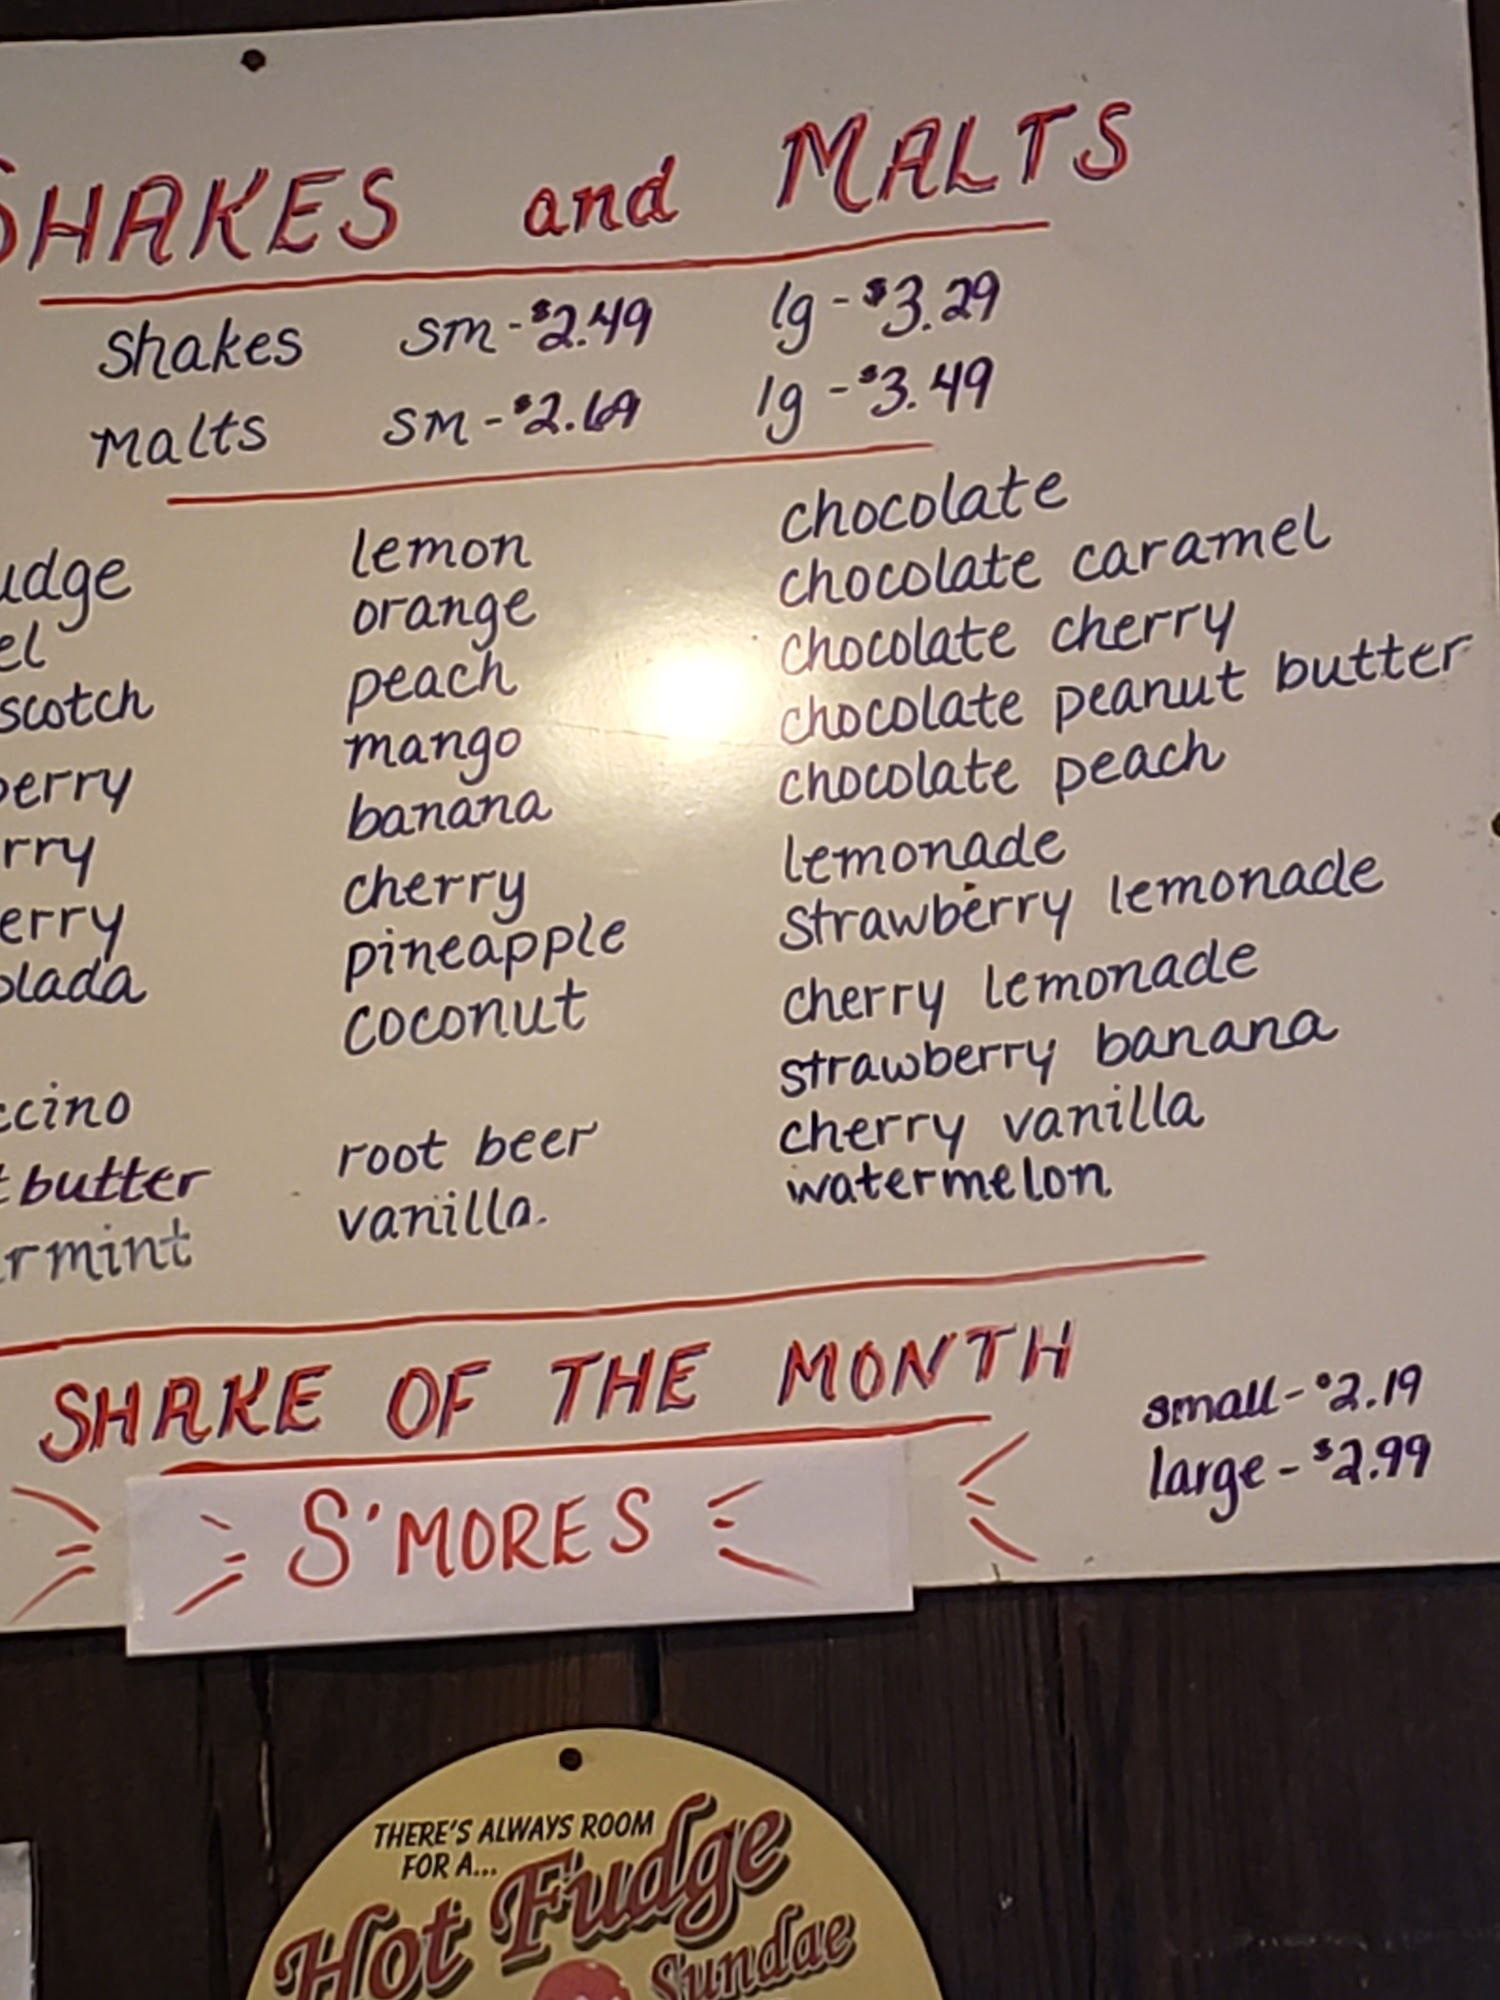 SHAKES and MALTS
Shakes sm-$2.49 lg-$3.29
Malts sm-$2.69 lg-$3.49
udge
el
scotch
berry
rry
erry
olada
ccino
butter
rmint
lemon
orange
peach
mango
banana
cherry
pineapple
coconut
root beer
vanilla.
chocolate
chocolate caramel
chocolate cherry
chocolate peanut butter
chocolate peach
lemonade
strawberry lemonade
cherry lemonade
strawberry banana
cherry vanilla
watermelon
SHAKE OF THE MONTH
S'MORES
small-$2.19
large-$2.99
THERE'S ALWAYS ROOM
FOR A...
Hot Fudge
Sundae